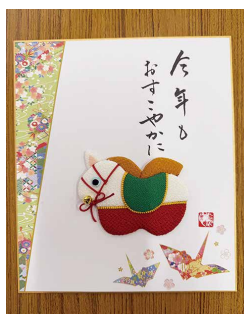 今年も
おすこやかに